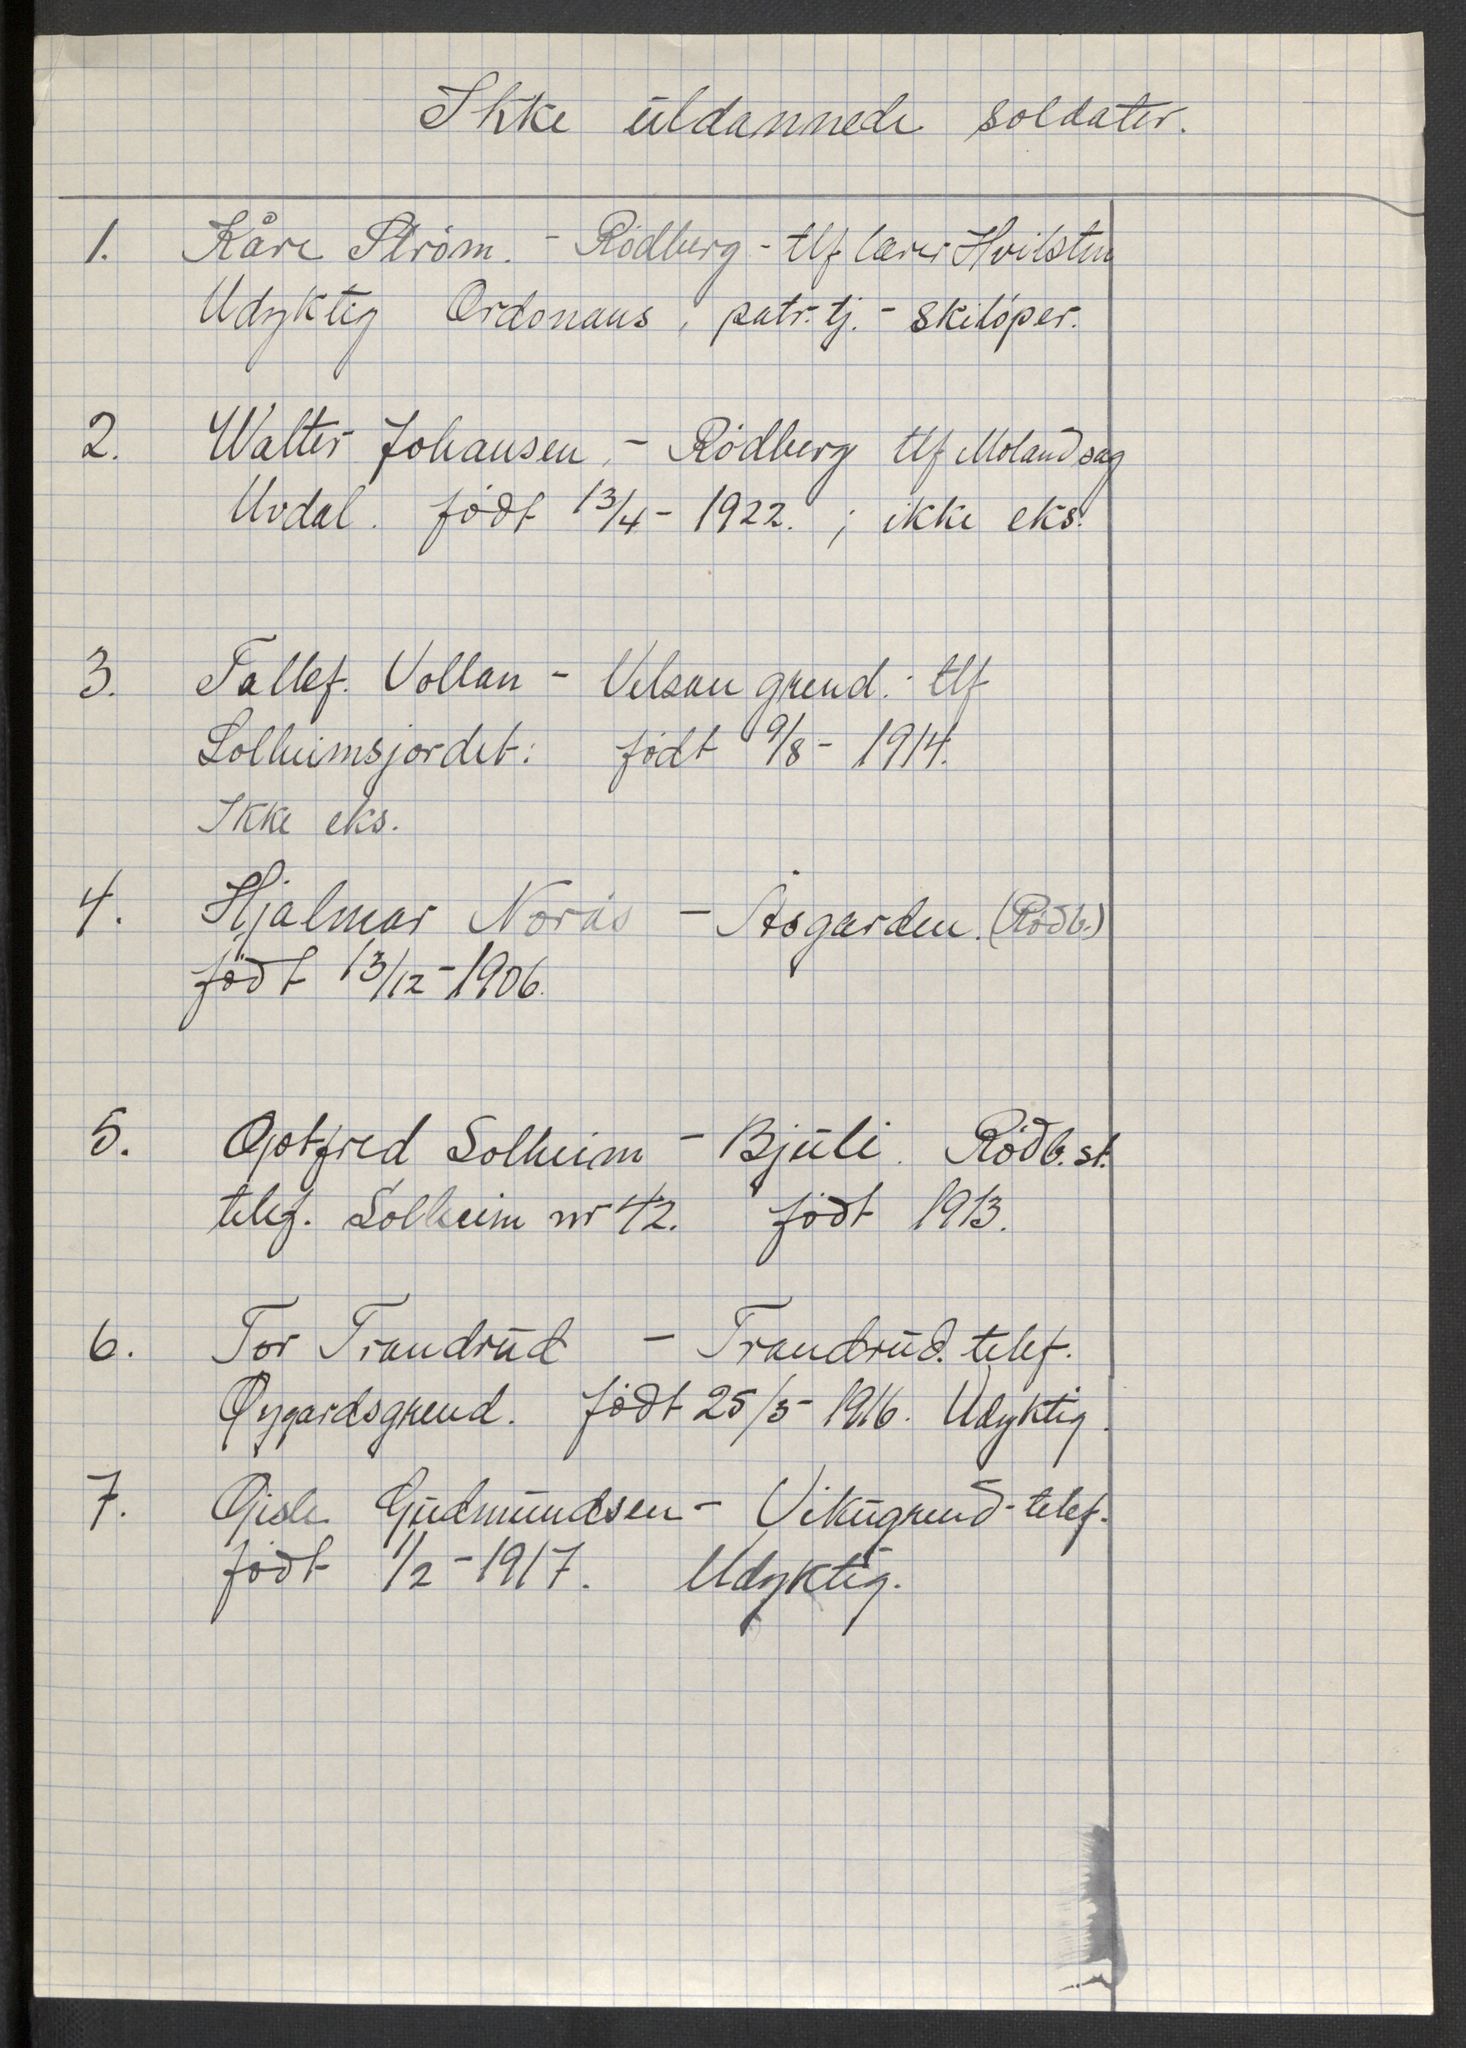 Ikke utdannede soldater.
1. Kåre Strøm. - Rødberg - tlf lærer Hvilsten
Udyktig Ordonans, patr. tj. - skiløper.
2. Walter Johansen. - Rødberg tlf Moland sag
Uvdal. født 13/4 - 1922. ; ikke eks.
3. Tallef. Vollan - grend. - tlf
Solheimsjordet: født 9/8 - 1914.
Ikke eks.
4. Hjalmar Norås - Åsgarden. (Rødb.)
født 13/12 - 1906.
5. Gotfred Solheim - Bjuli. Rødb. st.
telef. Solheim nr 42. født 1913.
6. Tor Trandrud - Trandrud. telef.
Øygardsgrend. født 25/5 - 1916. Udyktig.
7. Gisle Gudmundsen - Vikugrend - telef.
født 1/2 - 1917. Udyktig.